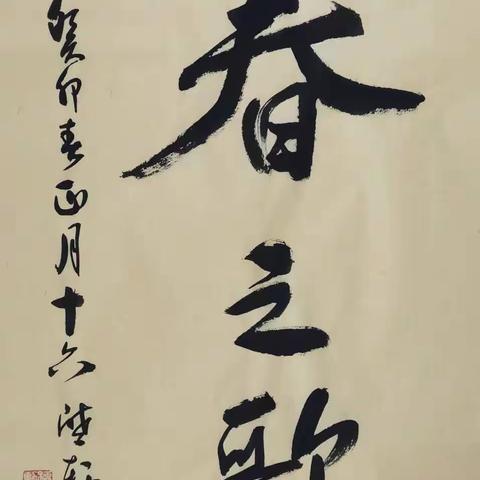 春之歌
癸卯春正月十六